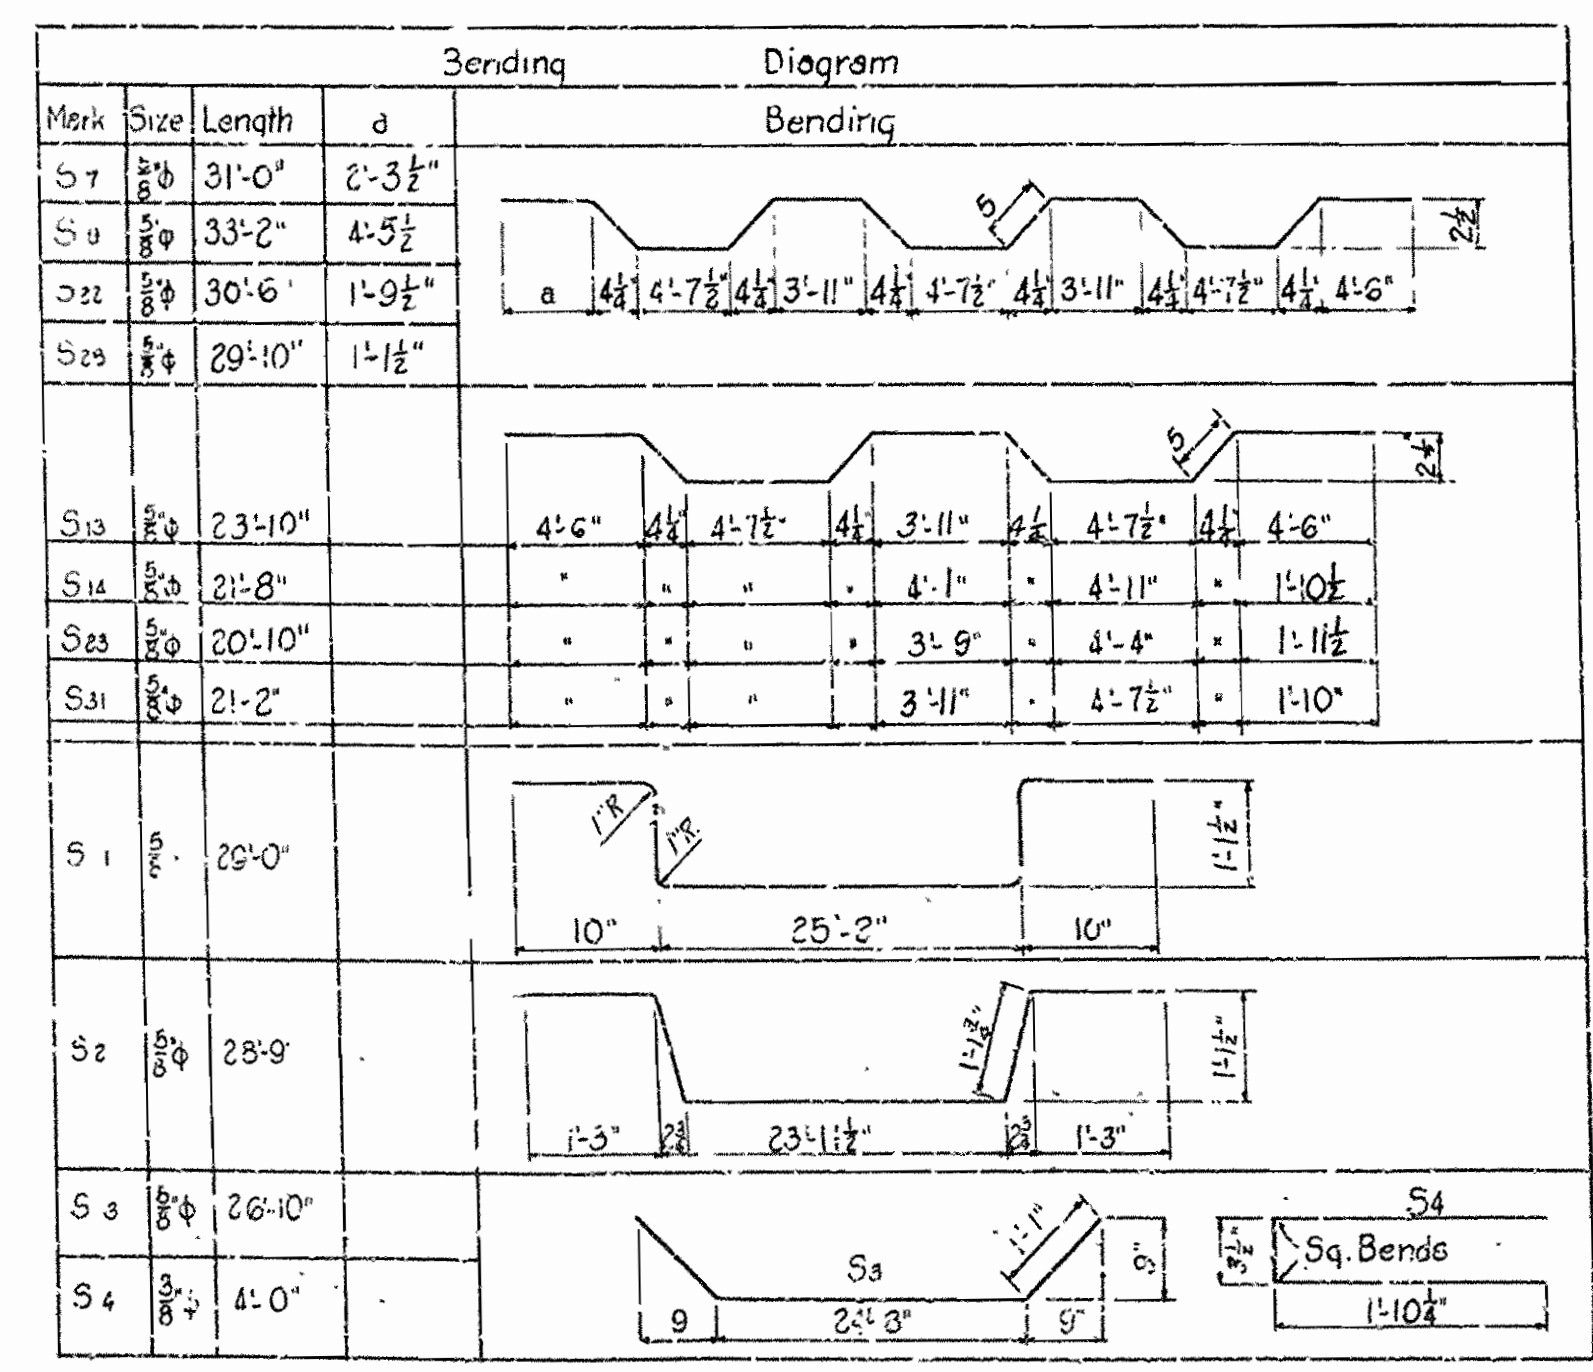 Bending Diagram
Mark Size Length a Bending
S7 5/8"φ 31'-0" 2'-3 1/2"
5/8"φ 33'-2" 4'-5 1/2
S22 5/8"φ 30'-6" 1'-9 1/2"
5/8"φ 29'-10" 1'-1 1/2"
5 2 1/2
a 4 1/4" 4'-7 1/2" 4 1/4" 3'-11" 4 1/4" 4'-7 1/2" 4 1/4" 3'-11" 4 1/4" 4'-7 1/2" 4 1/4" 4'-6"
5 2 1/2"
S13 5/8"φ 23'-10" 4'-6" 4 1/4" 4'-7 1/2" 4 1/4" 3'-11" 4 1/4 4'-7 1/2" 4 1/4" 4'-6"
S14 5/8"φ 21'-8" " " " " 4'-1" " 4'-11" " 1'-10 1/2
S23 5/8"φ 20'-10" " " " " 3'-9" " 4'-4" " 1'-11 1/2
S31 5/8"φ 21'-2" " " " 3'-11" " 4'-7 1/2" " 1'-10"
1"R
1"R.
1'-1 1/2"
S1
10" 25'-2" 10"
1'-1 3/4" 1'-1 1/2"
S2 5/8"φ 28'-9"
1'-3" 2 3/4 23'-11 1/2" 2 3/4 1'-3"
S3 5/8"φ 26'-10"
S4 3/8"φ 4'-0"
1'-1"
9"
S3
9 9"
S4
3 1/2"
Sq. Bends
1'-10 1/4"